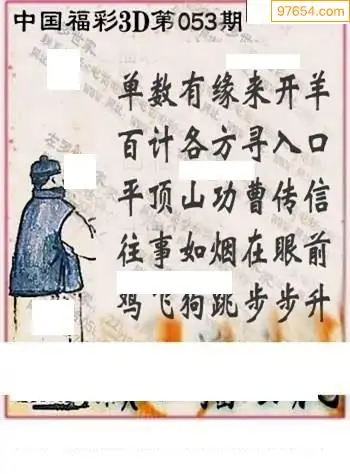 中国福彩3D第053期
97654.com
单数有缘来开羊
百计各方寻入口
平顶山功曹传信
往事如烟在眼前
鸡飞狗跳步步升